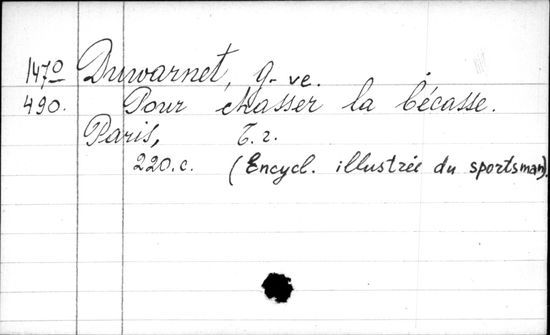 1470 Duwarnet, G-ve.
490. Pour chasser la bécasse.
Paris, б.г.
220.c. (Encycl. illustrée du sportsman).